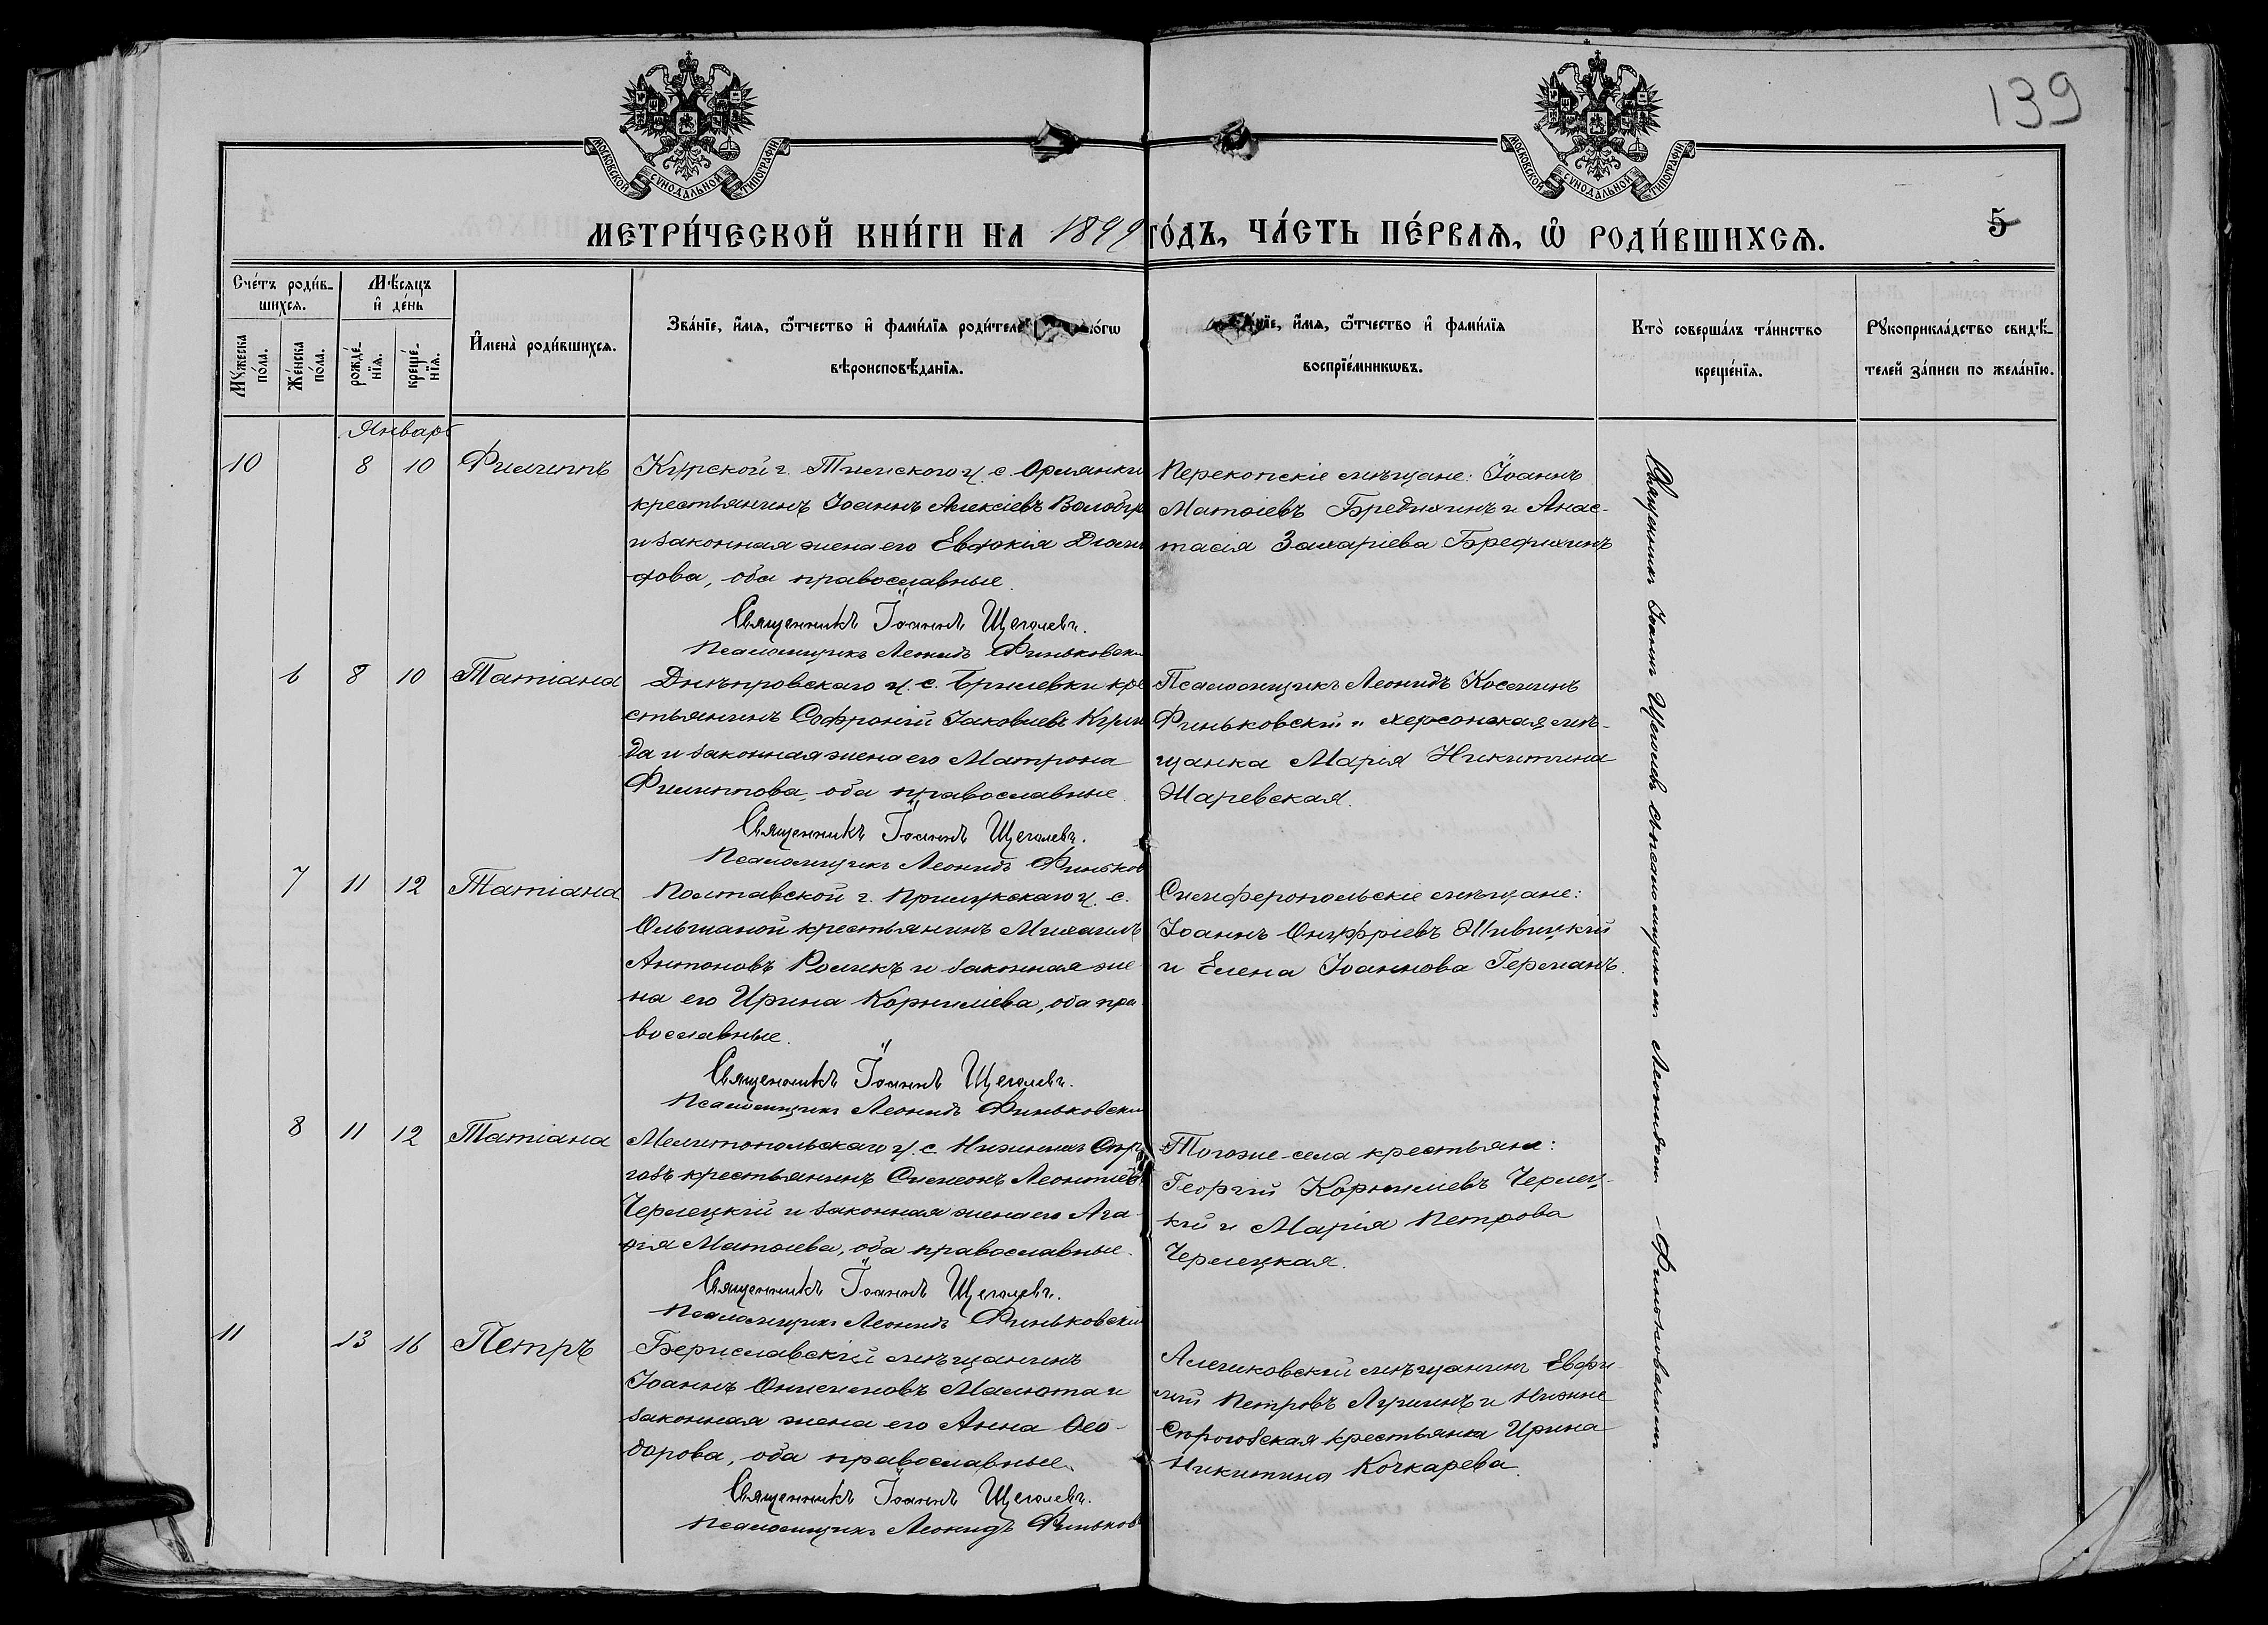 139
МОСКОВСКОЙ СУНОДАЛЬНОЙ ТИПОГРАФІИ
МОСКОВСКОЙ СУНОДАЛЬНОЙ ТИПОГРАФІИ
МЕТРИ́ЧЕСКОЙ КНИ́ГИ НА 1899 ГО́ДЪ, ЧА́СТЬ ПЕ́РВАѦ, Ѡ РОДИ́ВШИХСѦ.
5
Сче́тъ роди́в-
шихсѧ.
Мѣ́сѧцъ
и де́нь
Мꙋ́жеска по́ла.
Же́нска по́ла.
рожде́-
нїѧ.
креще́-
нїѧ.
И҆мена̀ роди́вшихсѧ.
Зва́нїе, и҆́мѧ, ѻ҆́тчество и҆ фами́лїѧ роди́теле
вѣроисповѣ́данїѧ.
и҆́мѧ, ѻ҆́тчество и҆ фами́лїѧ
воспрїе́мникѡвъ.
Кто̀ соверша́лъ та́инство
креще́нїѧ.
Рꙋкоприкла́дство свидѣ́-
телей за́писи по жела́нїю.
Январь
10 8 10 Филиппъ
Курской г. Тимскаго у. с. Орлянки
крестьянинъ Іоаннъ Алексіевъ Волобу
и законная жена его Евдокія Діоми
дова, оба православные.
Священникъ Іоаннъ Щеголевъ.
Псаломщикъ Леонидъ Финьковски
Перекопскіе мѣщане: Іоаннъ
Матѳіевъ Бредихинъ и Анас-
тасія Захаріева Бредихинъ
6 8 10 Татіана
Днѣпровскаго у. с. Брилевки кре
стьянинъ Софроній Іаковлевъ Кули
да и законная жена его Матрона
Филиппова, оба православные.
Священникъ Іоаннъ Щеголевъ.
Псаломщикъ Леонидъ Финьков
Псаломщикъ Леонидъ Косминъ
Финьковскій и херсонская мѣ-
щанка Марія Никитина
Шаревская.
7 11 12 Татіана
Полтавской г. Прилукскаго у. с.
Ольшаной крестьянинъ Михаилъ
Антоновъ Роликъ и законная же
на его Ирина Корниліева, оба пра
вославные.
Священникъ Іоаннъ Щеголевъ.
Псаломщикъ Леонидъ Финьковски
Симферопольскіе мѣщане:
Іоаннъ Онуфріевъ Шивицкій
и Елена Іоаннова Германъ.
8 11 12 Татіана
Мелитопольскаго у. с. Нижнихъ Сѣро
гозъ крестьянинъ Симеонъ Леонтіевъ
Черлецкій и законная жена его Ага
ѳія Матѳіева, оба православные.
Священникъ Іоаннъ Щеголевъ.
Псаломщикъ Леонидъ Финьковскій
Тогоже села крестьяне:
Георгій Корниліевъ Черлец-
кій и Марія Петрова
Черлецкая.
11 13 16 Петръ
Бериславскій мѣщанинъ
Іоаннъ Онисимовъ Малюта и
законная жена его Анна Ѳео-
дорова, оба православные.
Священникъ Іоаннъ Щеголевъ.
Псаломщикъ Леонидъ Финьков
Алешковскій мѣщанинъ Евфи
мій Петровъ и Нижне
Сѣрогозская крестьянка Ирина
Никитина Кочкарева.
Священникъ Іоаннъ Щеголевъ съ псаломщикомъ Леонидомъ Финьковскимъ